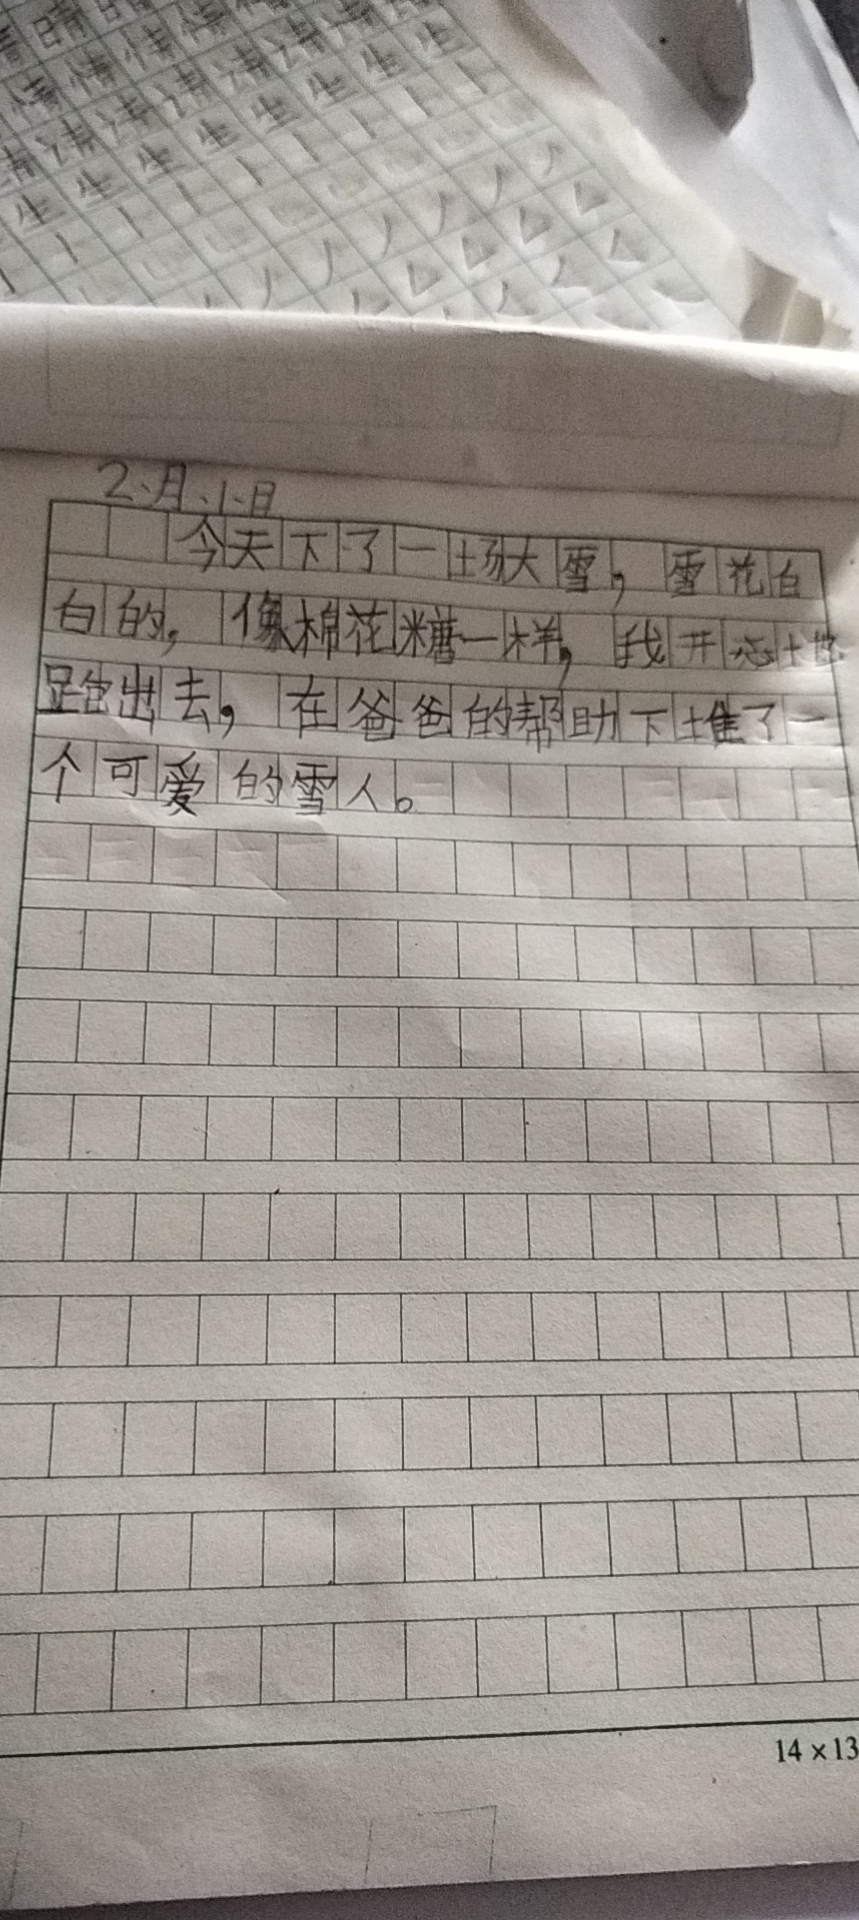 2月1日
今天下了一场大雪，雪花白
白的，像棉花糖一样，我开心地
跑出去，在爸爸的帮助下堆了一
个可爱的雪人。
14×13